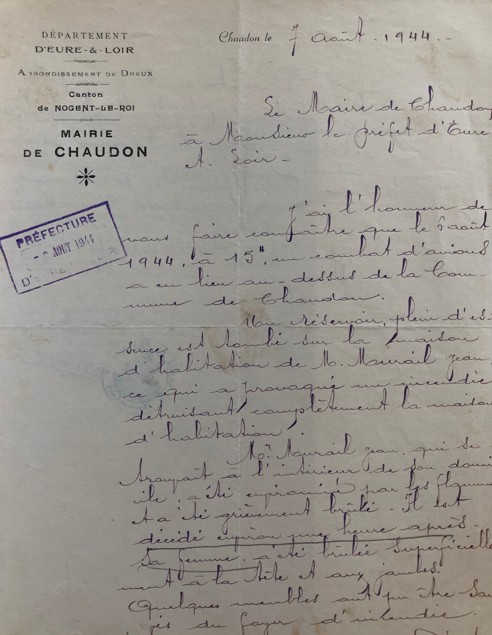 DÉPARTEMENT
D'EURE-&-LOIR
ARRONDISSEMENT DE DREUX
Canton
de NOGENT-LE-ROI
MAIRIE
DE CHAUDON
Chaudon le 7 Août 1944.-
Le Maire de Chaudon
à Monsieur le préfet d'Eure
et Loir-
PRÉFECTURE
AOUT 1944
J'ai l'honneur de
vous faire connaître que le 6 août
1944, à 15h, un combat d'avions
a eu lieu au-dessus de la Com-
mune de Chaudon.
Un réservoir, plein d'es-
sence est tombé sur la maison
d'habitation de M. Maurail jean
ce qui a provoqué un incendie
détruisant complètement la maison
d'habitation.
Mr Maurail jean, qui se
trouvait à l'intérieur de son domi
cile, a été environné par les flammes
et a été grièvement brûlé. Il est
décédé environ une heure après.
Sa femme a été brûlée superficielle
ment à la tête et aux jambes.
Quelques meubles ont pu être sau
vés du foyer d'incendie.